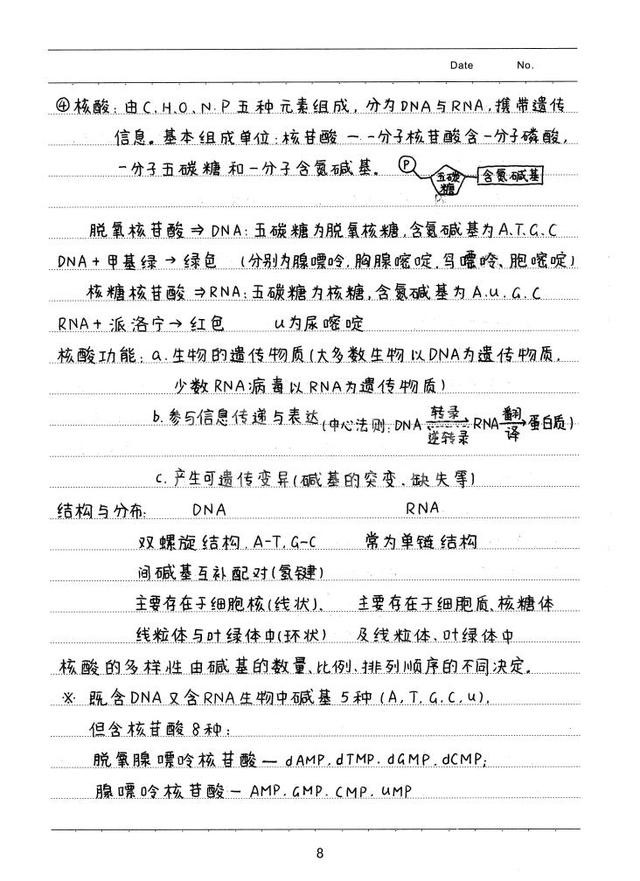 Date No.
④核酸：由C、H、O、N、P五种元素组成，分为DNA与RNA，携带遗传
信息。基本组成单位：核苷酸 — 一分子核苷酸含一分子磷酸，
一分子五碳糖和一分子含氮碱基。 P 五碳糖 含氮碱基
脱氧核苷酸⇒DNA：五碳糖为脱氧核糖，含氮碱基为A、T、G、C
DNA+甲基绿→绿色 （分别为腺嘌呤，胸腺嘧啶，鸟嘌呤、胞嘧啶）
核糖核苷酸⇒RNA：五碳糖为核糖，含氮碱基为A、U、G、C
RNA+派洛宁→红色 U为尿嘧啶
核酸功能：a.生物的遗传物质（大多数生物以DNA为遗传物质，
少数RNA病毒以RNA为遗传物质）
b.参与信息传递与表达（中心法则：DNA 转录 逆转录 RNA 翻译→蛋白质）
c.产生可遗传变异（碱基的突变、缺失等）
结构与分布： DNA RNA
双螺旋结构，A-T，G-C 常为单链结构
间碱基互补配对（氢键）
主要存在于细胞核（线状）、 主要存在于细胞质、核糖体
线粒体与叶绿体中（环状） 及线粒体、叶绿体中
核酸的多样性由碱基的数量、比例、排列顺序的不同决定。
※ 既含DNA又含RNA生物中碱基5种（A，T，G，C，U），
但含核苷酸8种：
脱氧腺嘌呤核苷酸—dAMP，dTMP，dGMP，dCMP；
腺嘌呤核苷酸—AMP，GMP，CMP，UMP
8